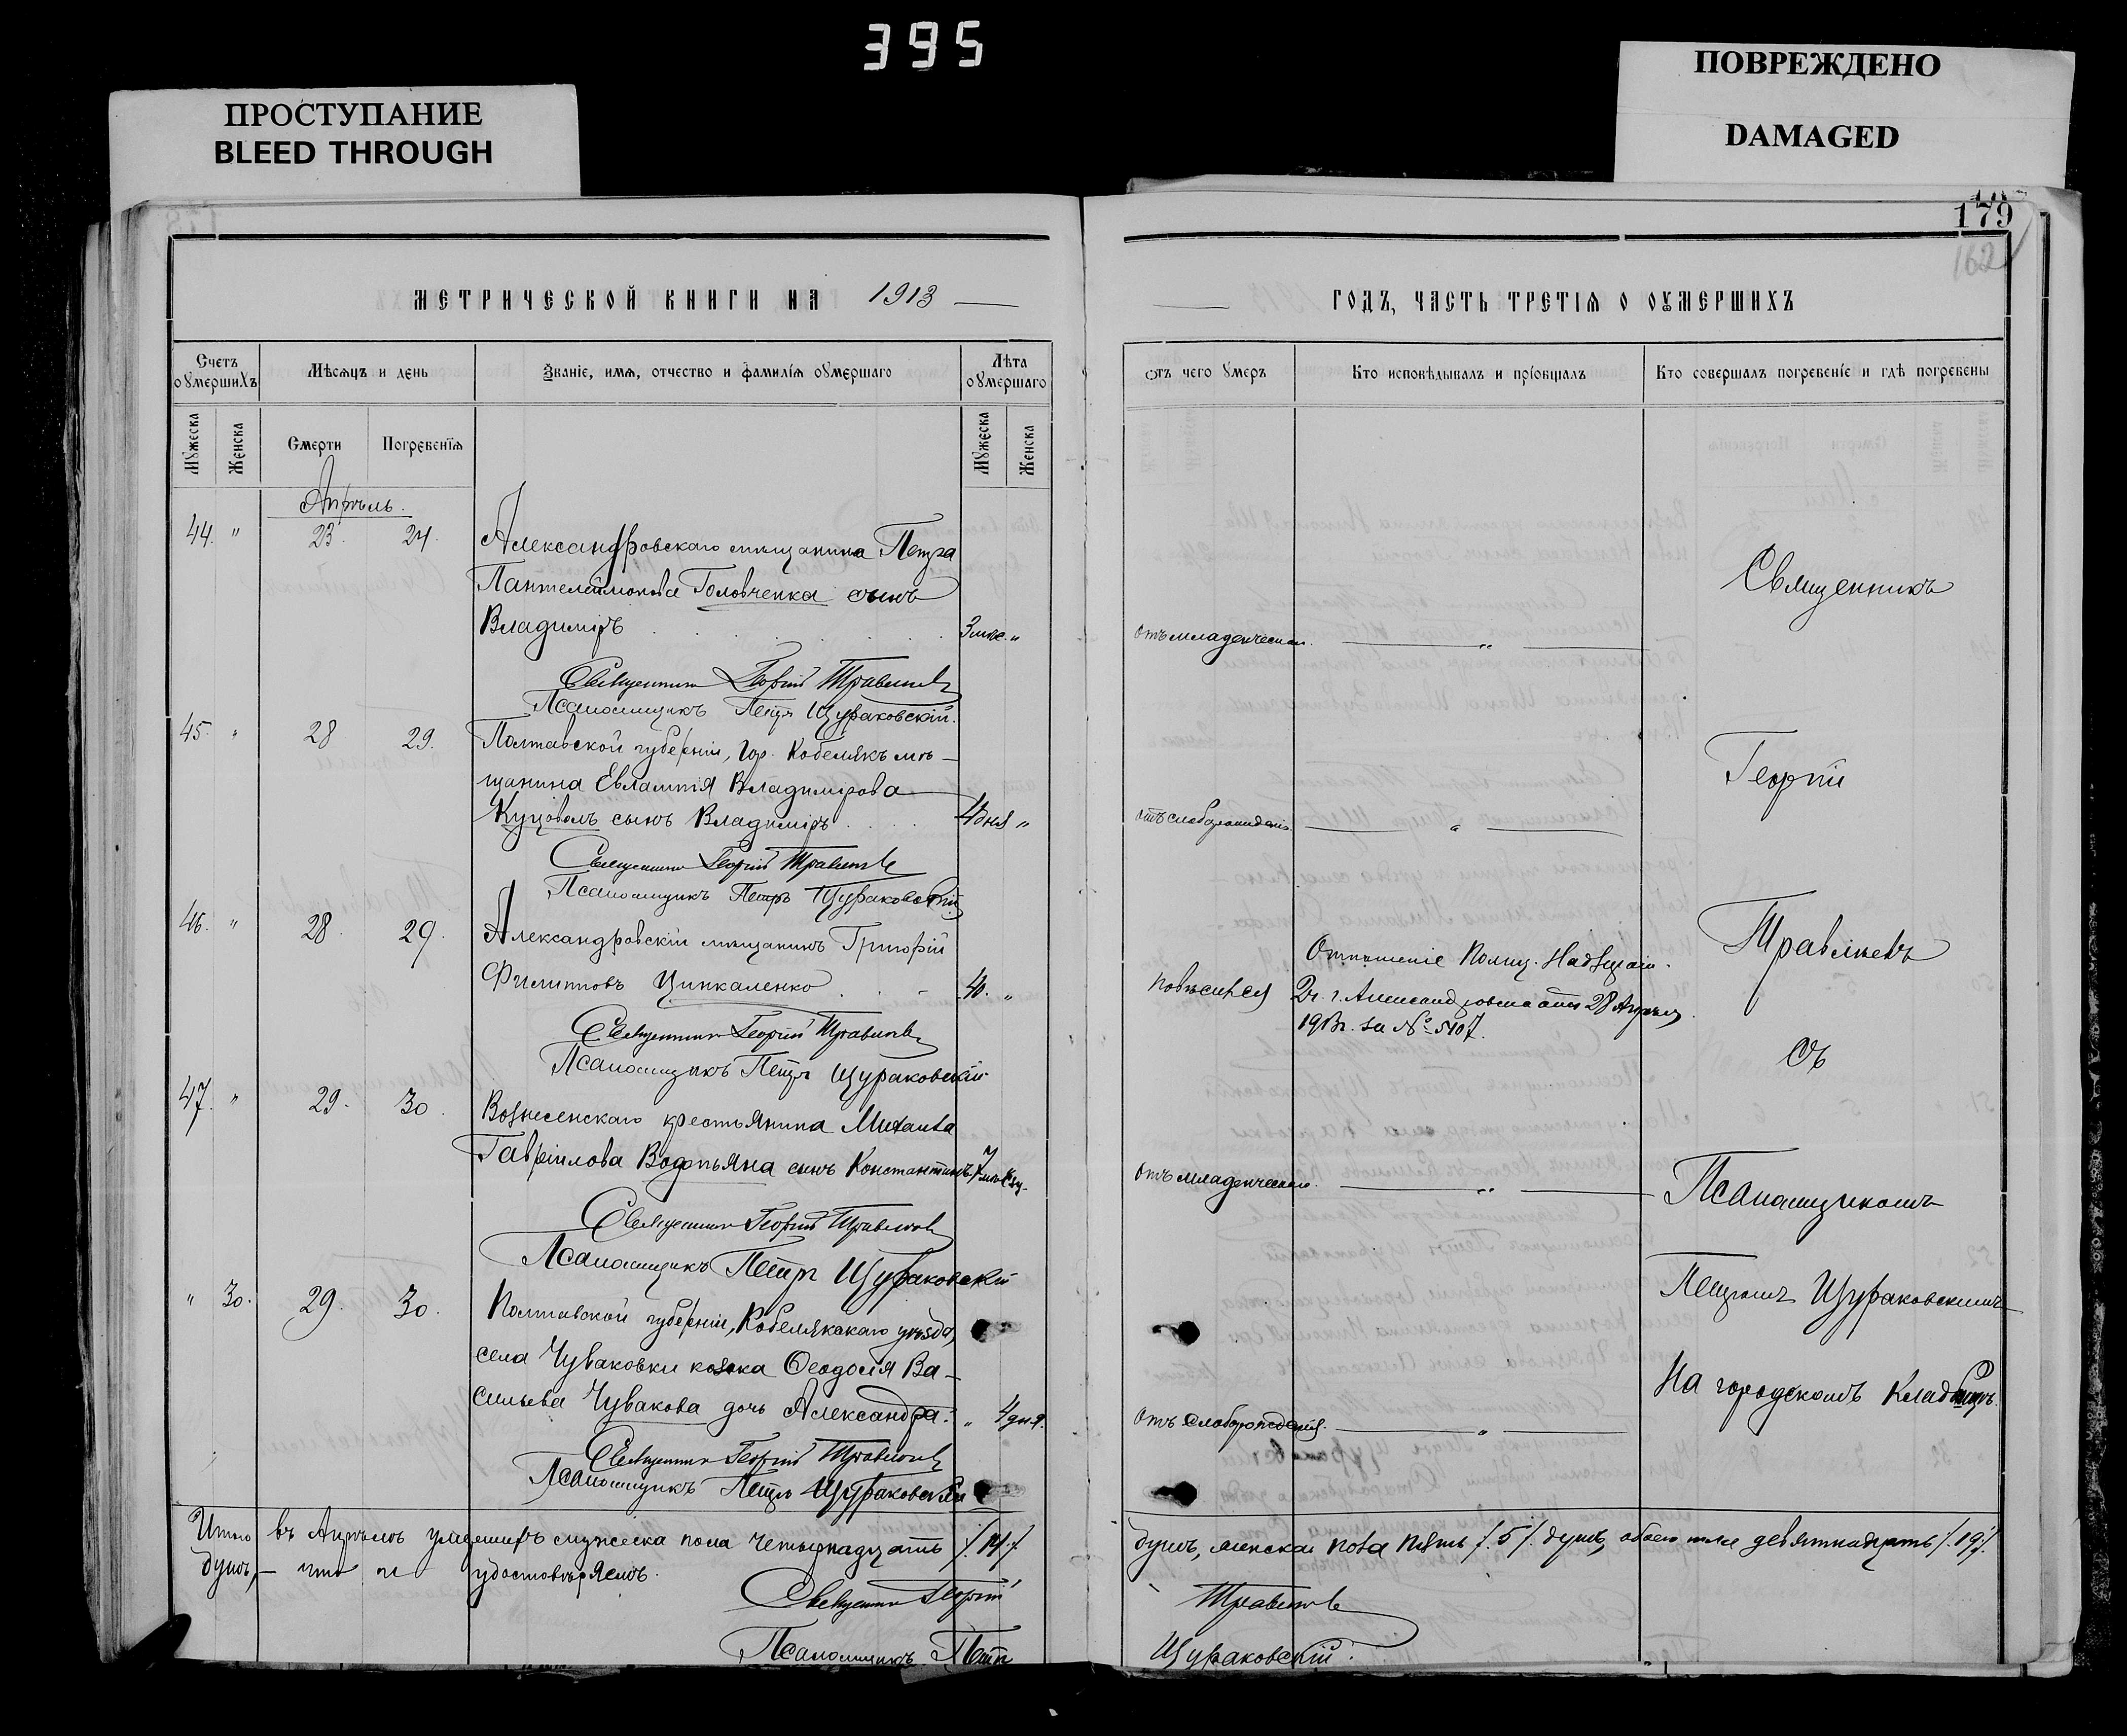 395
ПРОСТУПАНИЕ
BLEED THROUGH
ПОВРЕЖДЕНО
DAMAGED
179
162
МЕТРИЧЕСКОЙ КНИГИ НА 1913
ГОДЪ, ЧАСТЬ ТРЕТІЯ О ОУМЕРШИХЪ
Счетъ оумершихъ
Мѣсяцъ и день
Званіе, имя, отчество и фамилія оумершаго
Лѣта оумершаго
Отъ чего умеръ
Кто исповѣдывалъ и пріобщалъ
Кто совершалъ погребеніе и гдѣ погребены
Мужеска
Женска
Смерти
Погребенія
Мужеска
Женска
Апрѣль.
44. " 23. 24. Александровскаго мѣщанина Петра
Пантелеймонова Головченка сынъ
Владиміръ 3 мѣс. " отъ младенческой. "
Священникъ Георгій Травлиневъ
Псаломщикъ Петръ Щураковскій.
45. " 28 29. Полтавской губерніи, гор. Кобелякъ мѣ-
щанина Евлампія Владимірова
Куцоволъ сынъ Владиміръ 4 дня " отъ слаборожденія. "
Священникъ Георгій
Псаломщикъ Петръ Щураковскій
46. " 28. 29. Александровскій мѣщанинъ Григорій
Филипповъ Цинкаленко 40. "
повѣсился
Отношеніе Полиц. Надзират.
г. Александровска отъ 28 Апрѣля
1913 г. за № 5107.
Священникъ Георгій
Псаломщикъ Петръ Щураковскій
47. " 29. 30. Вознесенскаго крестьянина Михаила
Гавріилова Водопьяна сынъ Константинъ 7 мѣсяц. Отъ младенческой. "
Священникъ Георгій
Псаломщикъ Петръ Щураковскій
" 30. 29. 30. Полтавской губерніи, Кобелякскаго уѣзда,
села Чуваковки козака Ѳеодосія Ва-
сильева Чувакова дочь Александра. " 4 дня. Отъ слаборожденія. "
Священникъ Георгій
Псаломщикъ Петръ Щураковскій
Священникъ
Георгій
съ
Псаломщикомъ
Петромъ Щураковскимъ
На городскомъ кладбищѣ.
Итого въ Апрѣлѣ умершихъ мужеска пола четырнадцать /.14./ душъ, женска пола пять /.5./ душъ, обоего пола девятнадцать /.19./
душъ, — что и удостовѣряемъ.
Священникъ Георгій
Псаломщикъ Петръ Щураковскій.